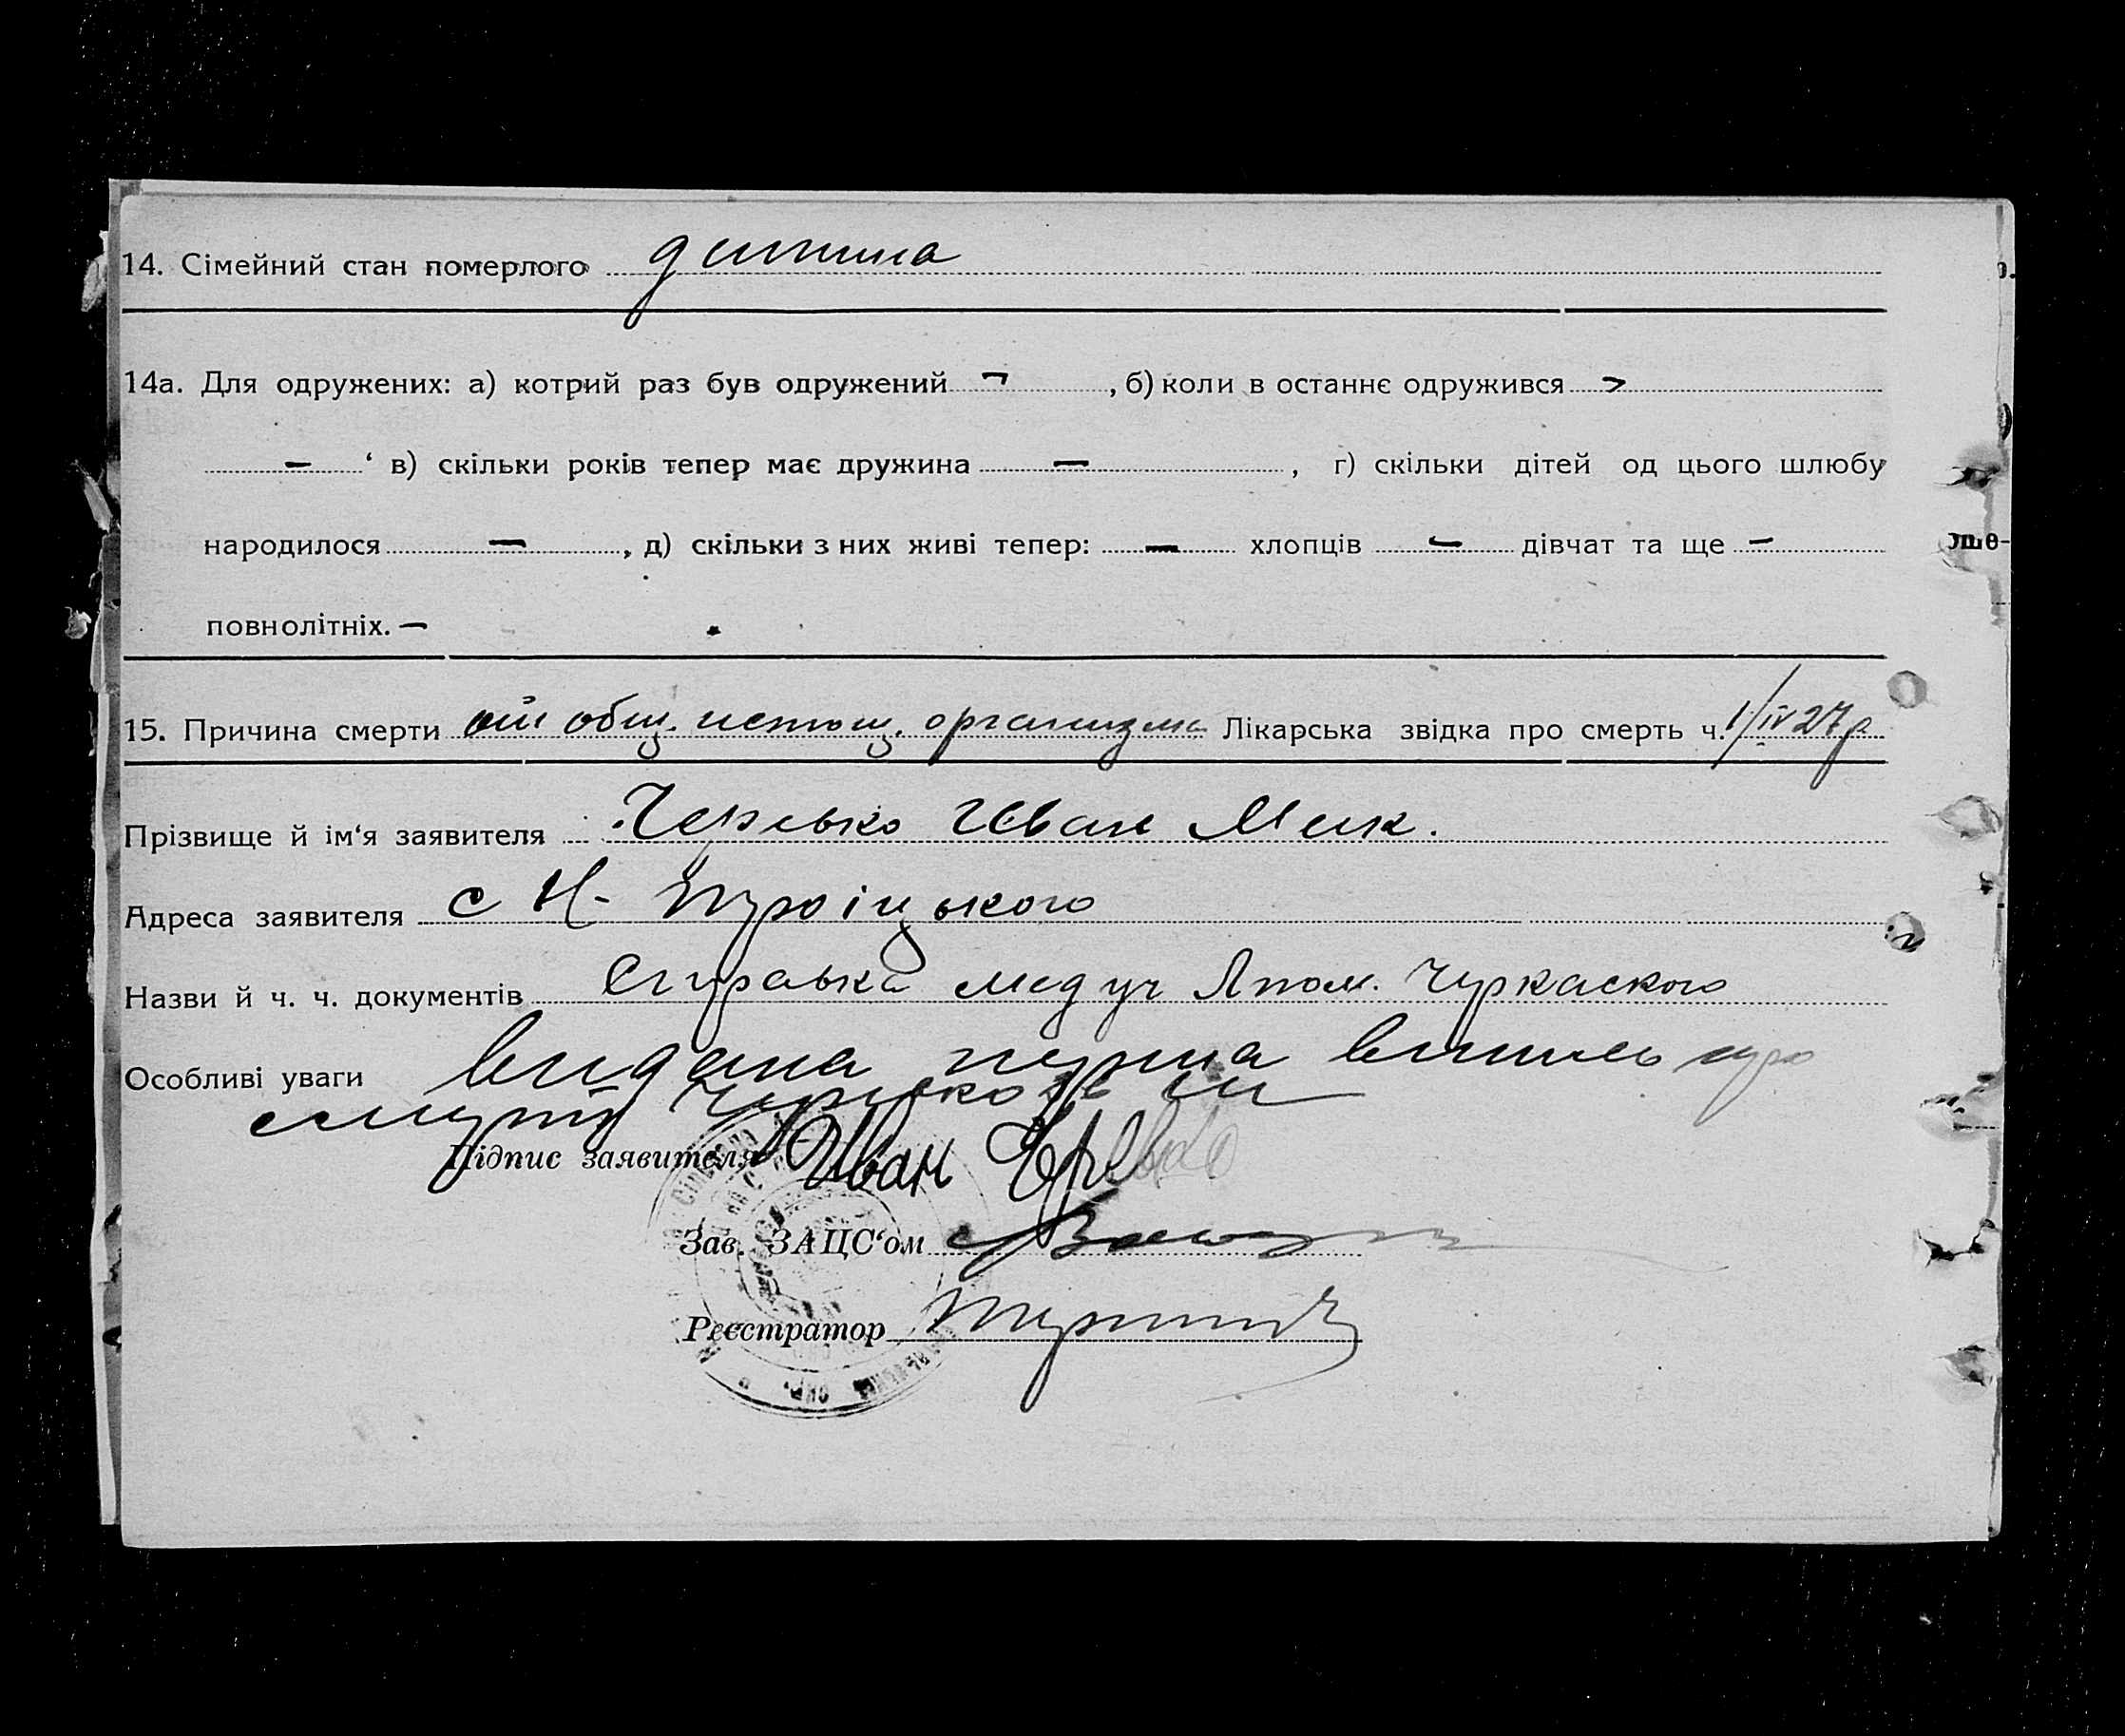 14. Сімейний стан померлого дитина
14а. Для одружених: а) котрий раз був одружений —, б) коли в останнє одружився —
— ‘ в) скільки років тепер має дружина —, г) скільки дітей од цього шлюбу
народилося —, д) скільки з них живі тепер: — хлопців — дівчат та ще —
повнолітніх. —
15. Причина смерти от общ. истощ. организма Лікарська звідка про смерть ч. 1/IV 27 р
Прізвище й ім‘я заявителя Іван Мик.
Адреса заявителя с Н- Троіцького
Назви й ч. ч. документів Справка мед уч
Особливі уваги видана перша випись про
смерть
Підпис заявителя Іван
Зав. ЗАЦС‘ом
Реєстратор